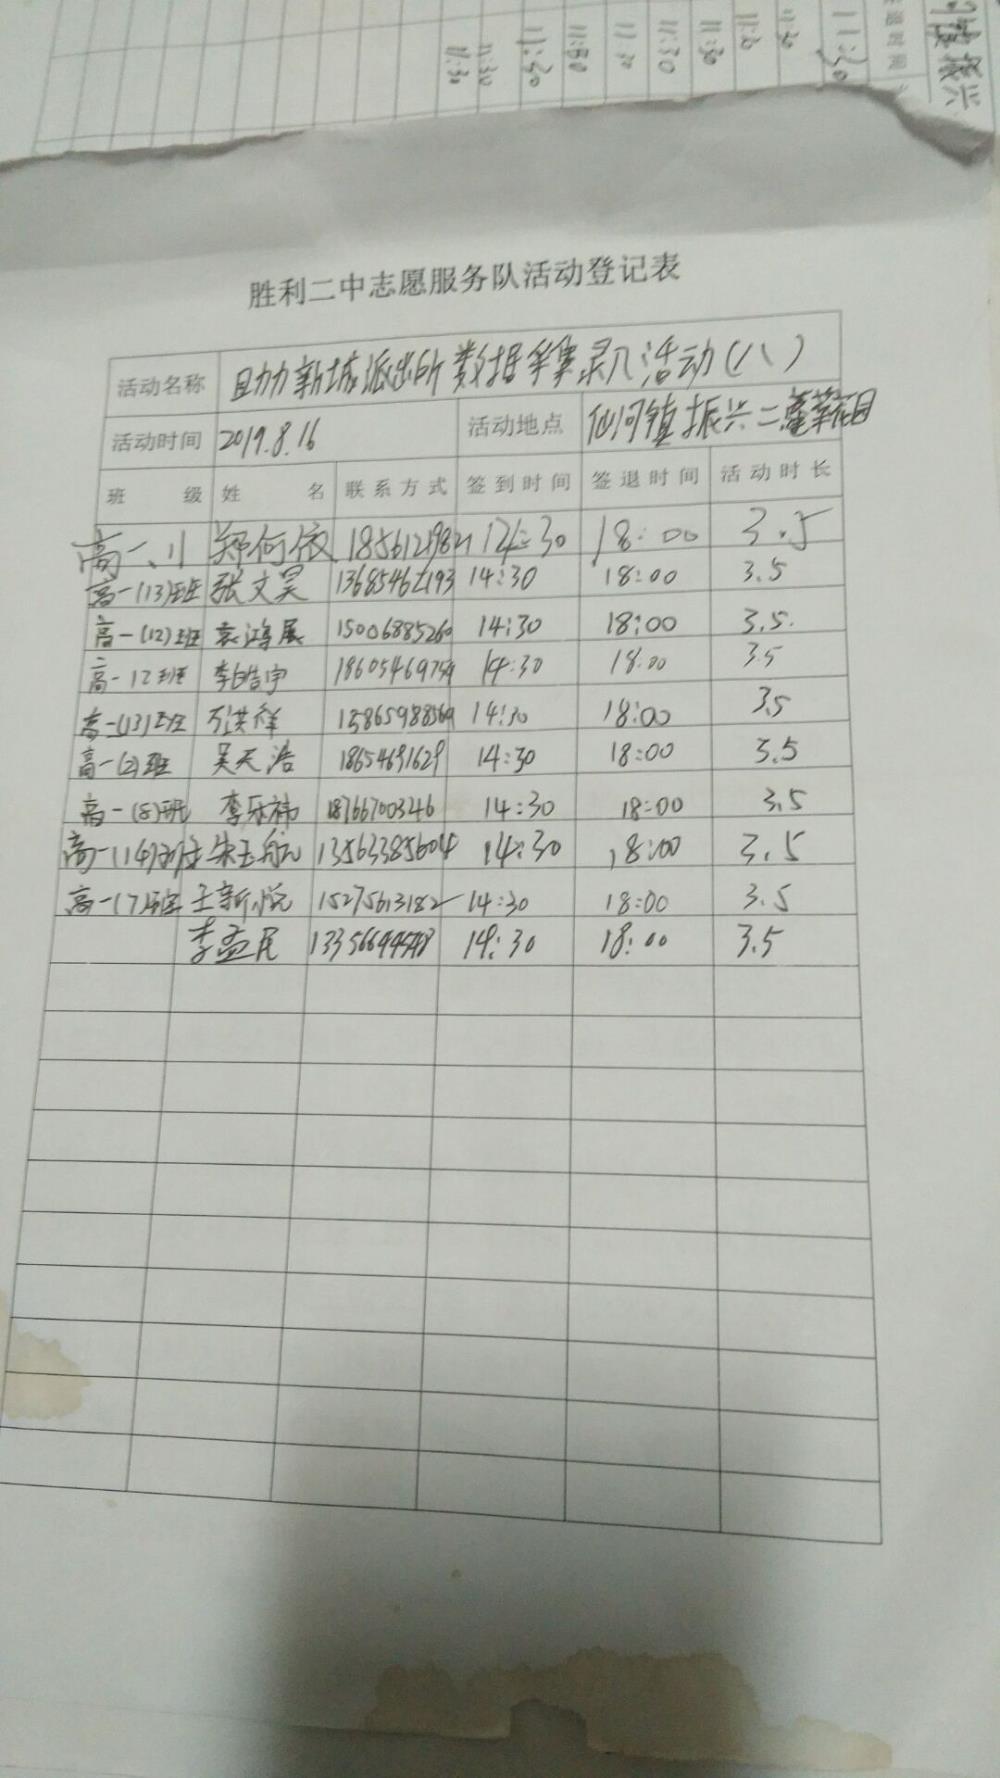 11:30 11:30 11:30 11:30 11:30 11:30 11:30 11:30
退时间
振兴
胜利二中志愿服务队活动登记表
活动名称 助力新城派出所数据采集录入活动(八)
活动时间 2019.8.16 活动地点 仙河镇振兴二
班级 姓名 联系方式 签到时间 签退时间 活动时长
高一、11 郑何依 14:30 18:00 3.5
高一(13)班 张文昊 14:30 18:00 3.5
高一(12)班 袁鸿展 15006885260 14:30 18:00 3.5.
高一12班 李皓宇 14:30 18:00 3.5
高一(13)班 万洪祥 14:30 18:00 3.5
高一(2)班 吴天浩 18654691629 14:30 18:00 3.5
高一(8)班 李乐祎 187667003246 14:30 18:00 3.5
高一(14)班 朱玉航 13563385604 14:30 18:00 3.5
高一(7)班 王新悦 15275613182 14:30 18:00 3.5
李孟尾 14:30 18:00 3.5